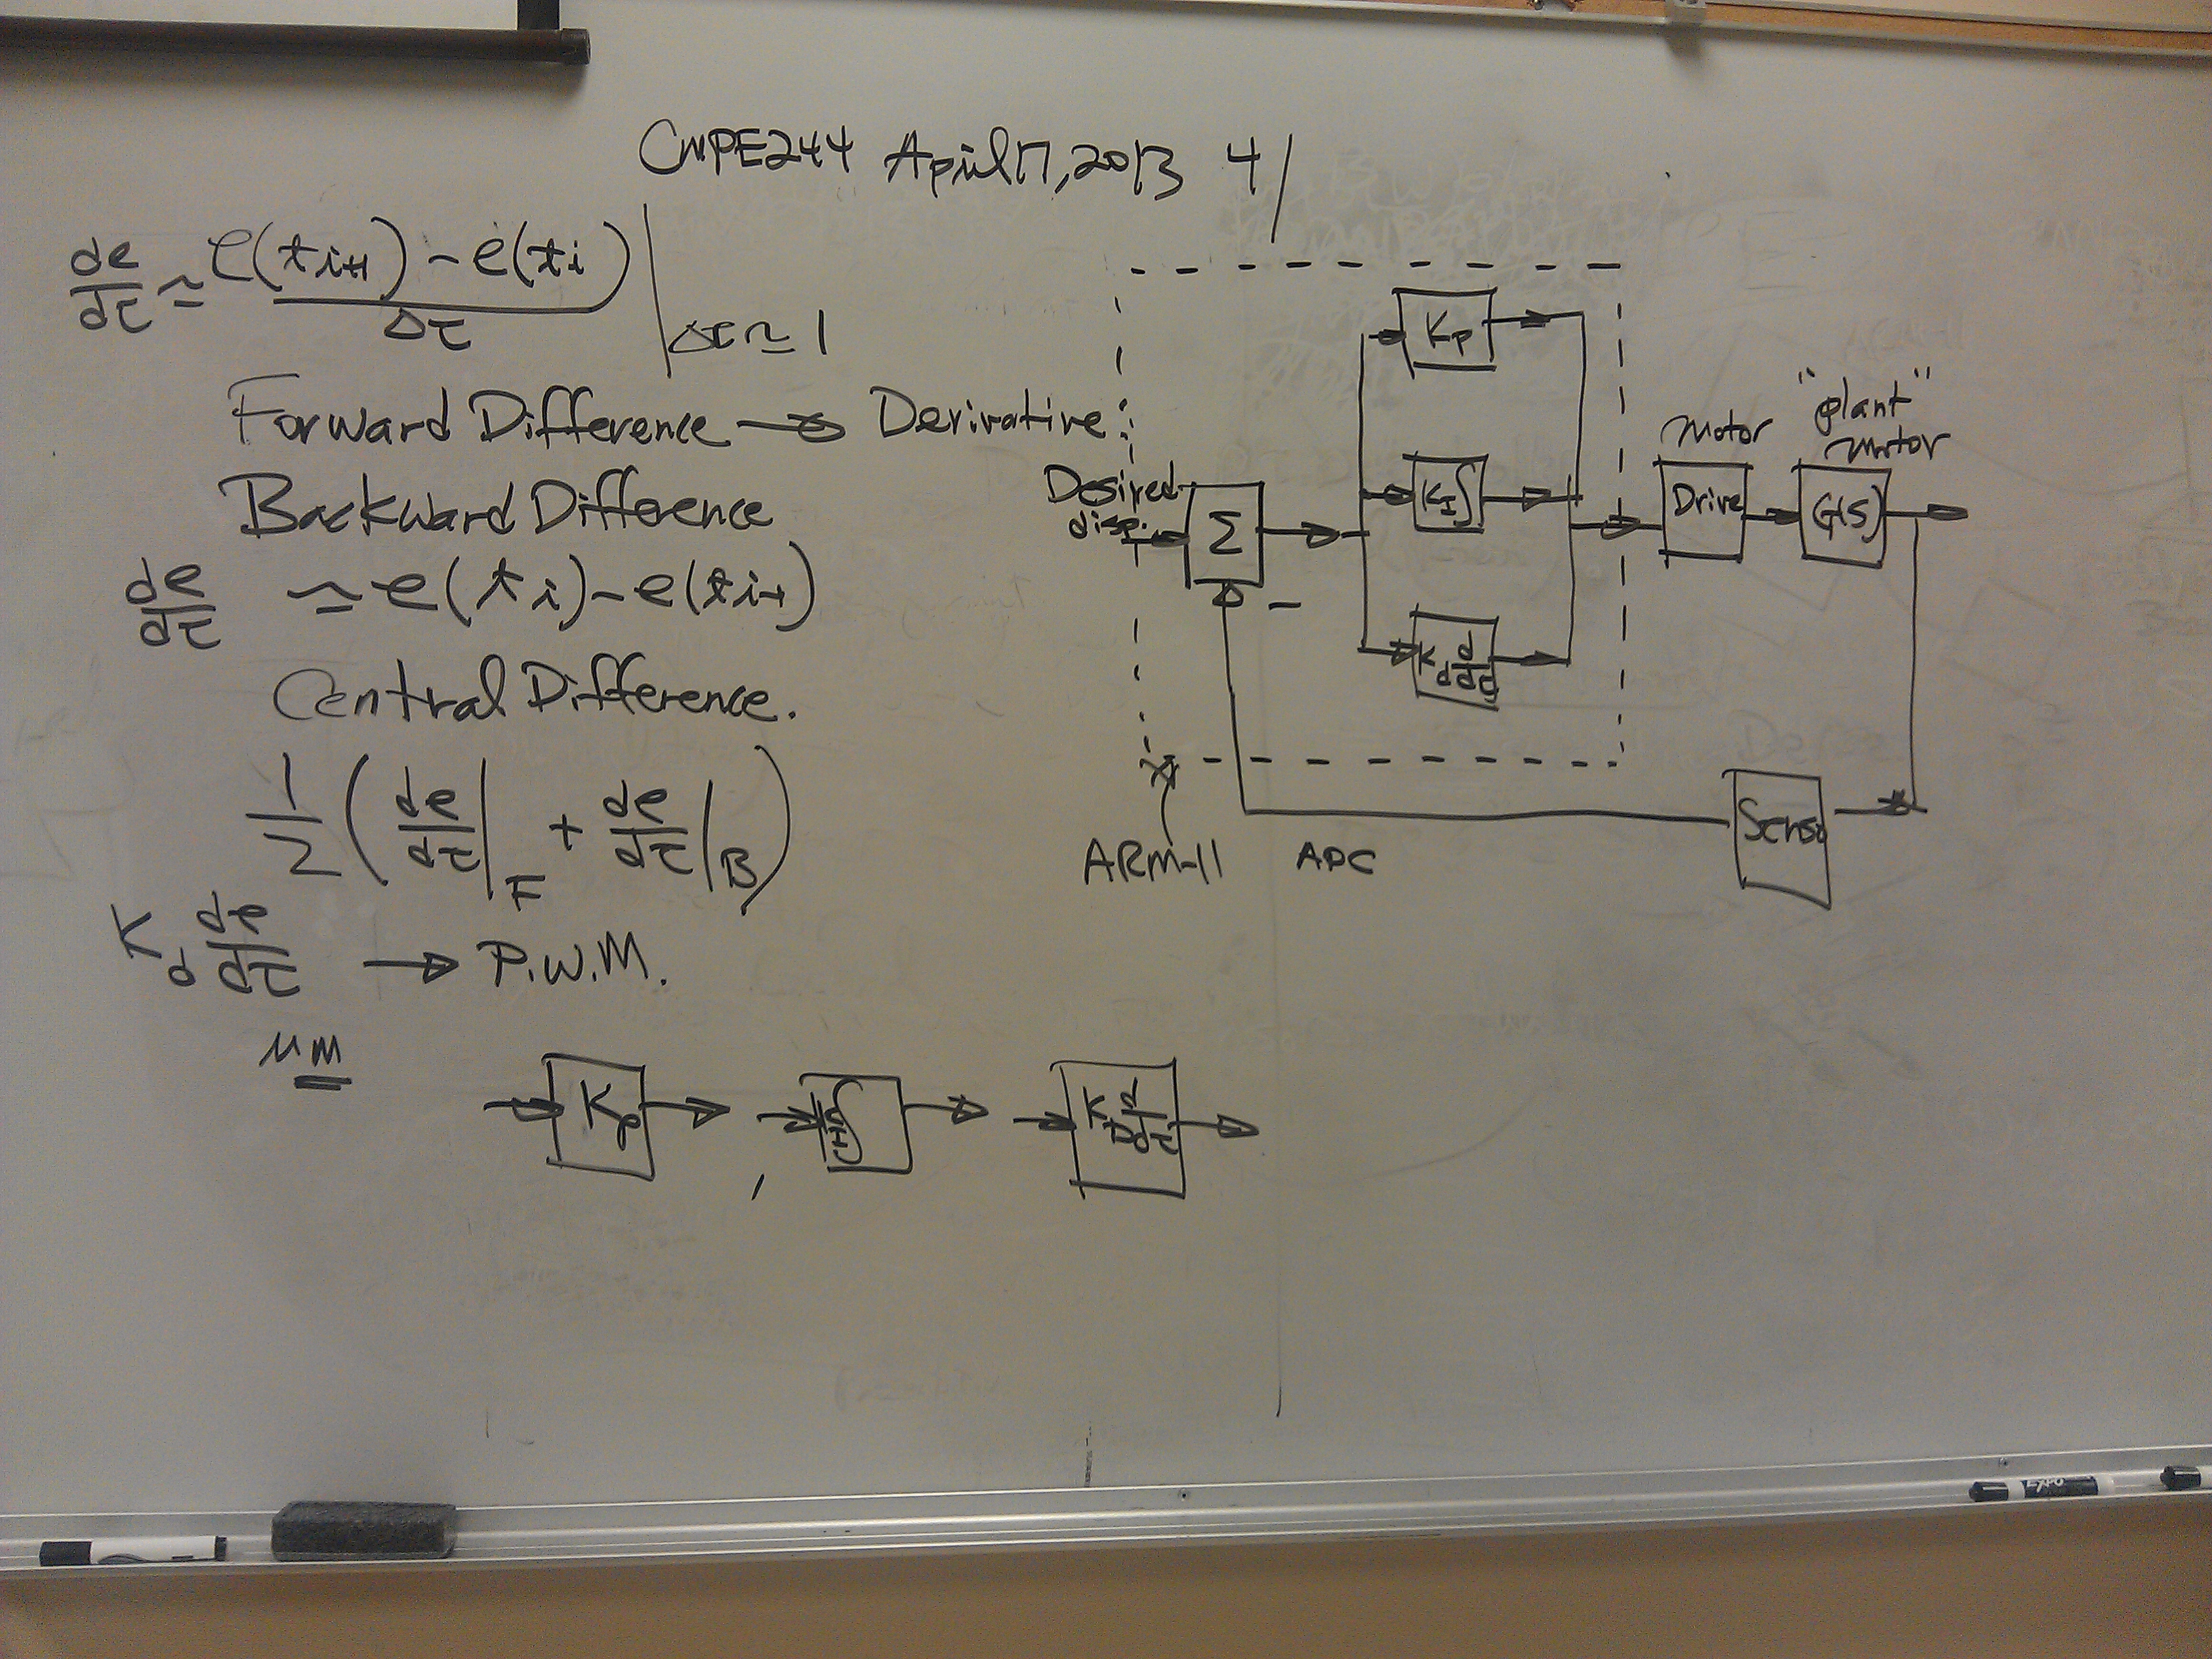 CMPE244 April 17, 2013 4/
de/dt ≃ e(t_{i+1}) - e(t_i) / Δt | Δt ≃ 1
Forward Difference → Derivative:
Backward Difference
de/dt ≃ e(t_i) - e(t_{i-1})
Central Difference.
1/2 ( de/dt |_F + de/dt |_B )
K_d de/dt → P.W.M.
μm
K_p
∫
K_D d/dt
Desired
disp.
Σ
-
K_P
K_I ∫
K_d d/dt
Motor
Drive
"plant"
motor
G(s)
Senso
ARM-11
ADC
EXPO